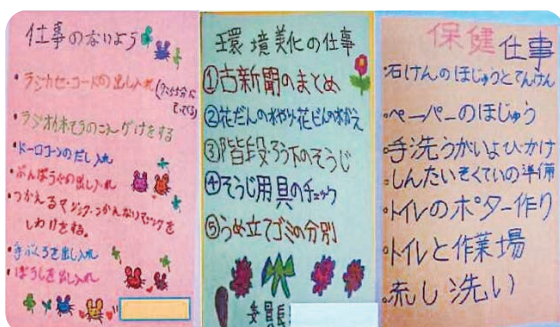 仕事のないよう
・ラジカセ・コードの出し入れ
をする
の出し入れ
・つかえるマジック、つかえないマジックを
しわけをする。
・手ぶくろを出し入れ
・ぼうしを出し入れ
環境美化の仕事
①古新聞のまとめ
②花だんの水やり花びんの水かえ
③階段ろう下のそうじ
④そうじ用具のチェック
⑤うめ立てゴミの分別
委員長
保健仕事
・石けんのほじゅうとてんけん
・ペーパーのほじゅう
・手洗うがいよびかけ
・しんたいそくていの準備
・トイレのポスター作り
・トイレと作業場